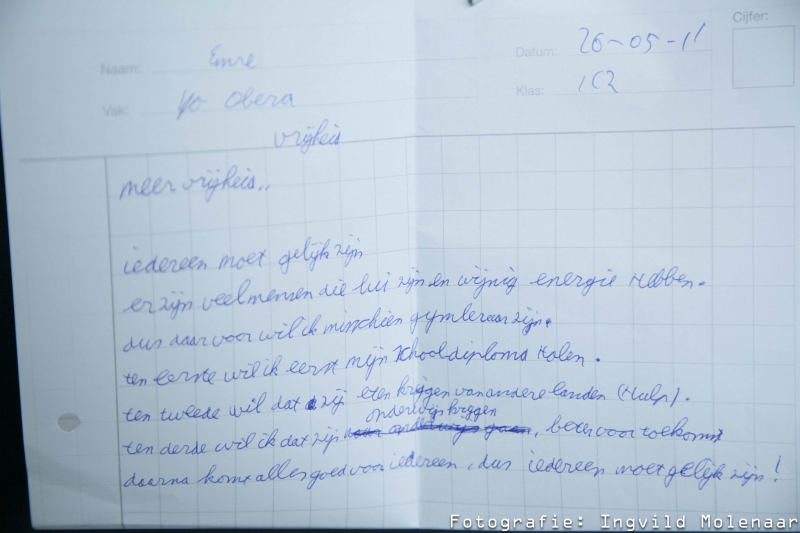 Cijfer:
Naam: Emre
Datum: 26-05-11
Vak: yo obera
Klas: 1C2
vrijheis
meer vrijheis..
iedereen moet gelijk zijn
er zijn veel mensen die lui zijn en wijnig energie Hebben.
dus daar voor wil ik misschien gymleraar zijn.
ten eerste wil ik eerst mijn schooldiploma Halen.
ten tweede wil dat zij eten krijgen van andere landen (Hulp).
ten derde wil ik dat zij onderwijs krijgen, beter voor toekomst
daarna komt alles goed voor iedereen, dus iedereen moet gelijk zijn!
Fotografie: Ingvild Molenaar